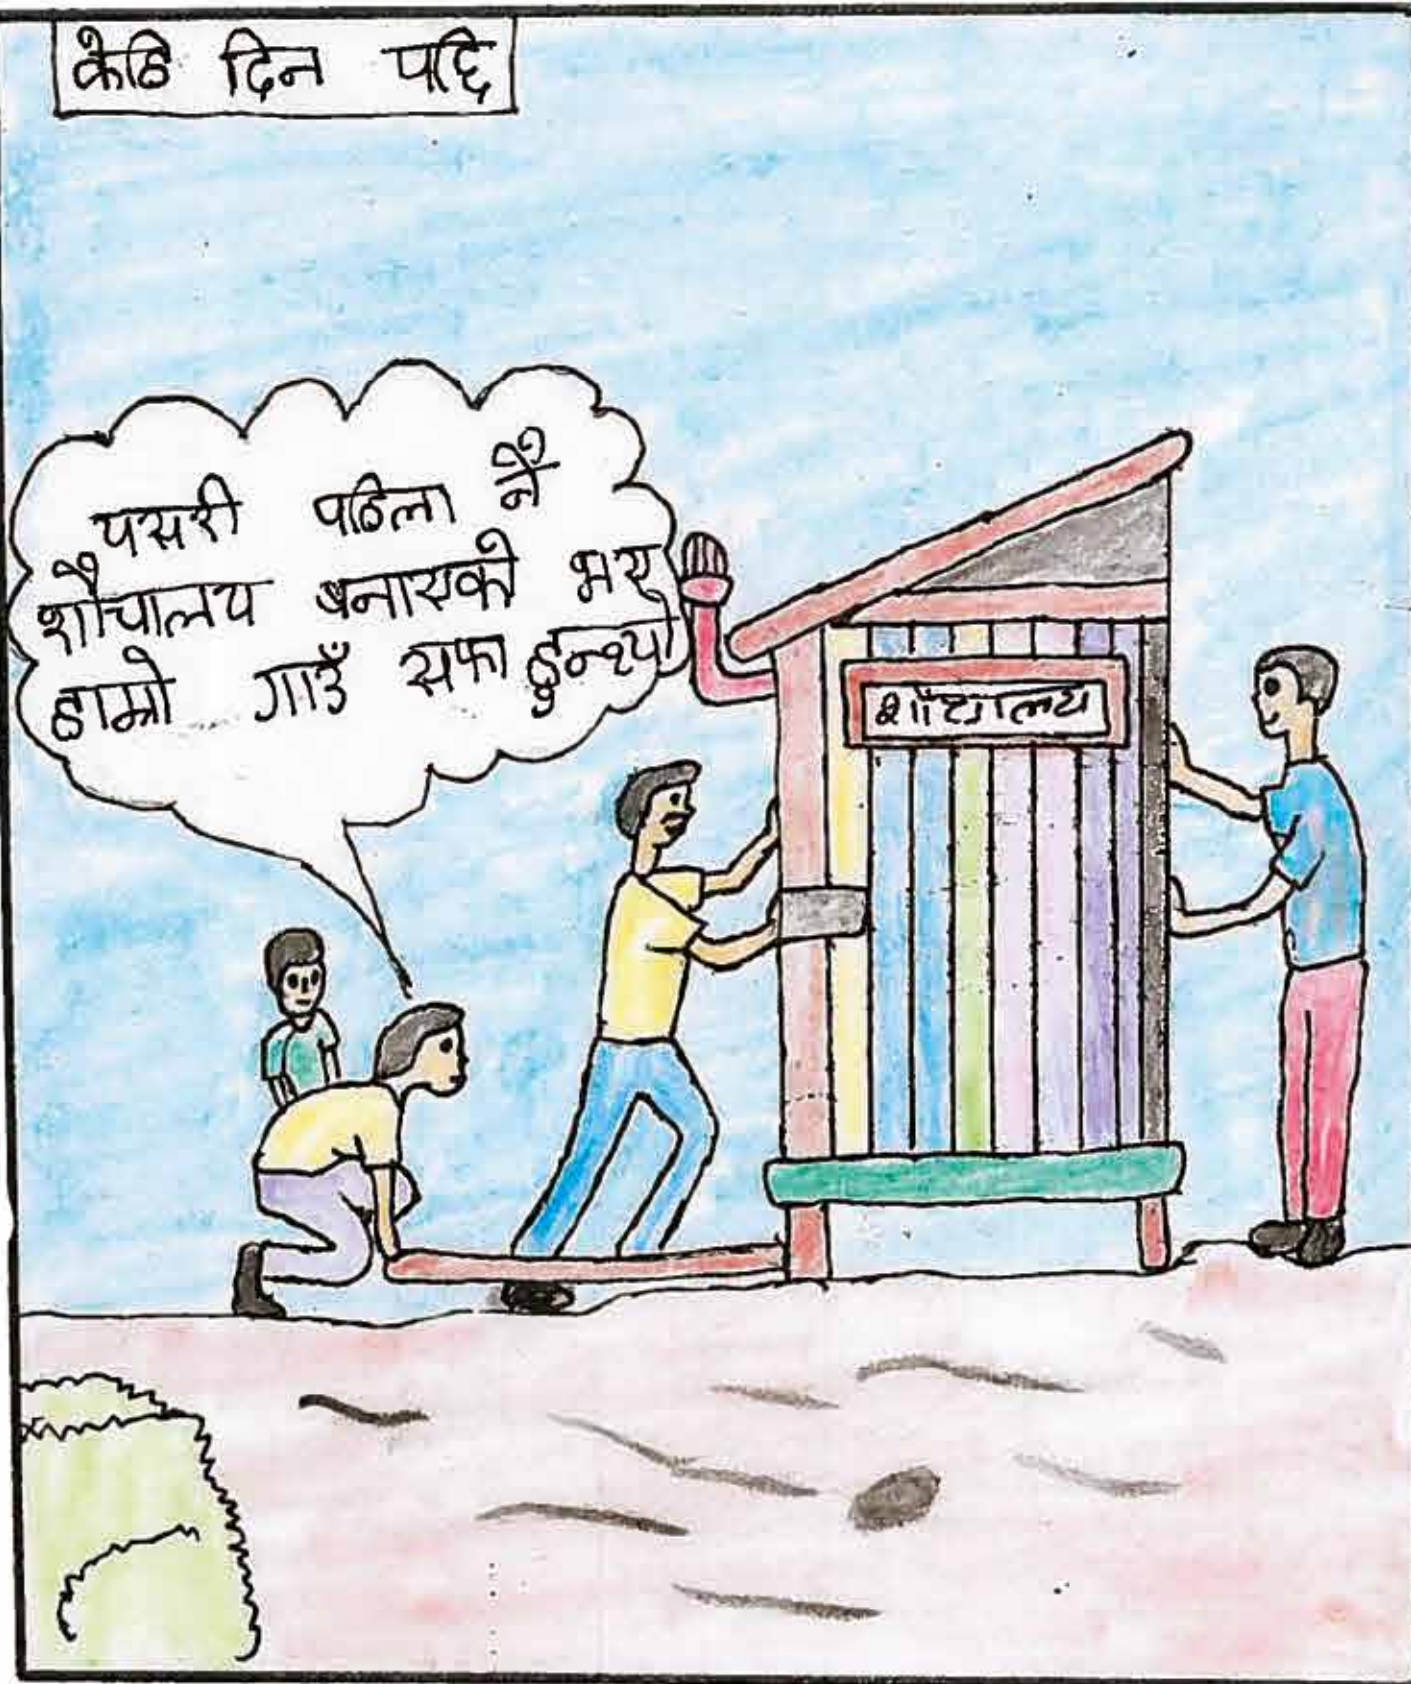 केहि दिन पछि
यसरी पहिला नै
शौचालय बनाएको भए
हाम्रो गाउँ सफा हुन्थ्यो
शौचालय